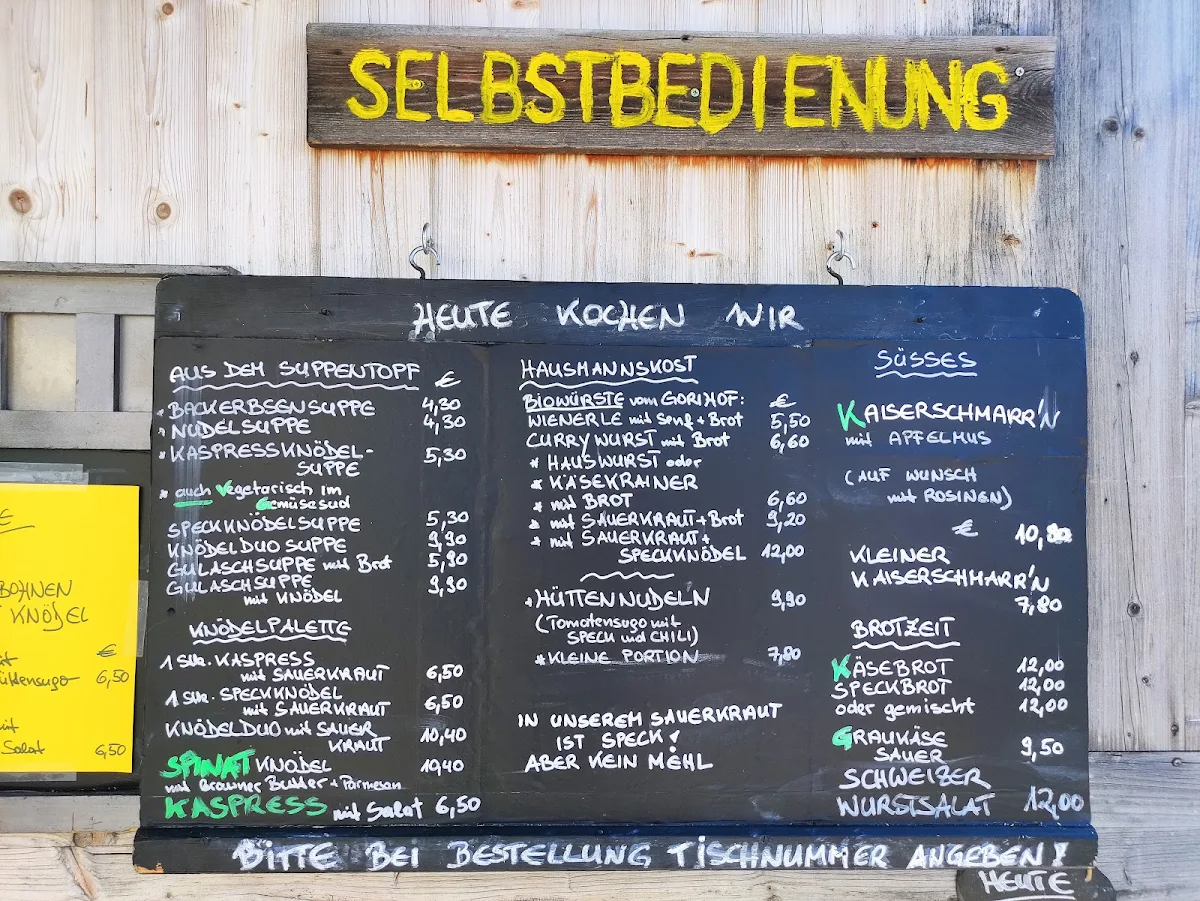 SELBSTBEDIENUNG
HEUTE KOCHEN WIR
AUS DEM SUPPENTOPF €
* BACKERBSENSUPPE 4,30
* NUDELSUPPE 4,30
* KASPRESSKNÖDEL- 5,30
SUPPE
* auch Vegetarisch im
Gemüsesud
SPECKKNÖDELSUPPE 5,30
KNÖDELDUO SUPPE 9,90
GULASCHSUPPE mit Brot 5,90
GULASCHSUPPE 9,90
mit KNÖDEL
KNÖDELPALETTE
1 Stk. KASPRESS
mit SAUERKRAUT 6,50
1 Stk. SPECKKNÖDEL
mit SAUERKRAUT 6,50
KNÖDELDUO mit SAUER
KRAUT 10,40
SPINATKNÖDEL 10,40
mit Brauner Butter + Parmesan
KASPRESS mit Salat 6,50
HAUSMANNSKOST
BIOWÜRSTE vom GORIHOF: €
WIENERLE mit Senf + Brot 5,50
CURRYWURST mit Brot 6,60
* HAUSWURST oder
* KÄSEKRAINER
* mit BROT 6,60
* mit SAUERKRAUT + Brot 9,20
* mit SAUERKRAUT +
SPECKKNÖDEL 12,00
* HÜTTENNUDELN 9,90
(Tomatensugo mit
SPECK und CHILI)
* KLEINE PORTION 7,80
IN UNSEREM SAUERKRAUT
IST SPECK!
ABER KEIN MEHL
SÜSSES
KAISERSCHMARR'N
mit APFELMUS
(AUF WUNSCH
mit ROSINEN)
€ 10,80
KLEINER
KAISERSCHMARR'N
7,80
BROTZEIT
KÄSEBROT 12,00
SPECKBROT 12,00
oder gemischt 12,00
GRAUKÄSE
SAUER 9,50
SCHWEIZER
WURSTSALAT 12,00
BITTE BEI BESTELLUNG TISCHNUMMER ANGEBEN!
HEUTE
BOHNEN
KNÖDEL
€
6,50
Salat 6,50